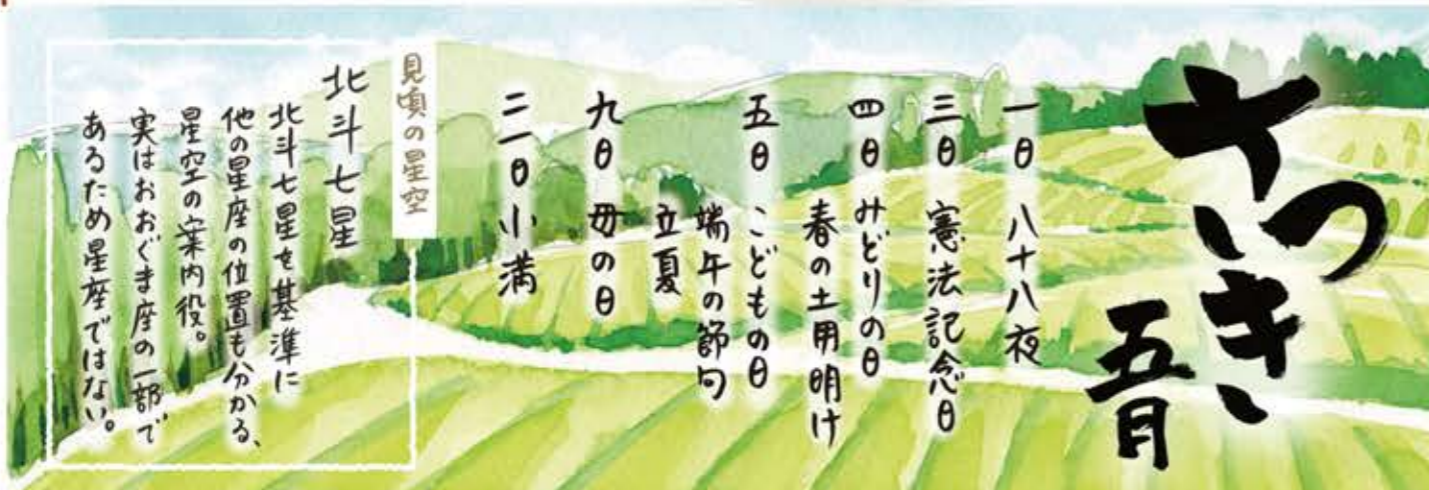 さつき
五月
一日 八十八夜
三日 憲法記念日
四日 みどりの日
春の土用明け
五日 こどもの日
端午の節句
立夏
九日 母の日
二一日 小満
見頃の星空
北斗七星
北斗七星を基準に
他の星座の位置も分かる、
星空の案内役。
実はおおぐま座の一部で
あるため星座ではない。